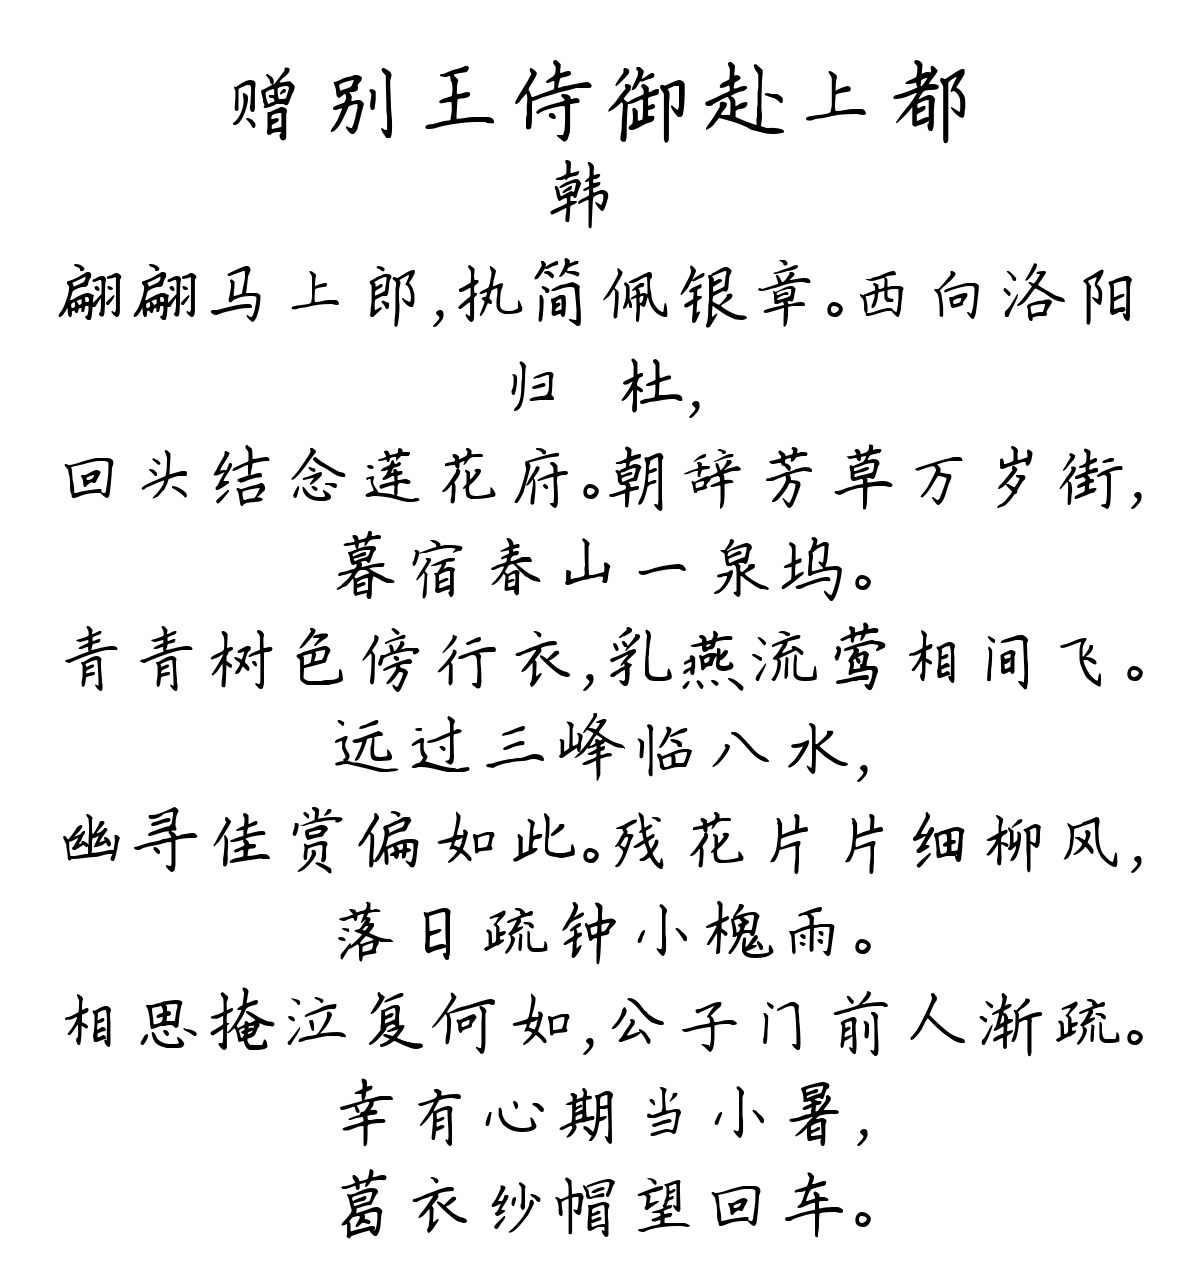 赠别王侍御赴上都
韩
翩翩马上郎,执简佩银章。西向洛阳
归 杜,
回头结念莲花府。朝辞芳草万岁街,
暮宿春山一泉坞。
青青树色傍行衣,乳燕流莺相间飞。
远过三峰临八水,
幽寻佳赏偏如此。残花片片细柳风,
落日疏钟小槐雨。
相思掩泣复何如,公子门前人渐疏。
幸有心期当小暑,
葛衣纱帽望回车。